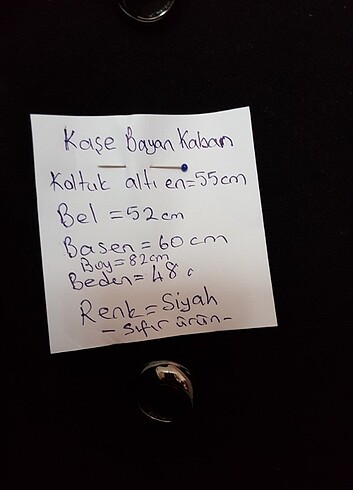 Kaşe Bayan Kaban
Koltuk altı en=55cm
Bel =52cm
Basen=60cm
Boy=82cm
Beden=48
Renk=Siyah
- Sıfır ürün-